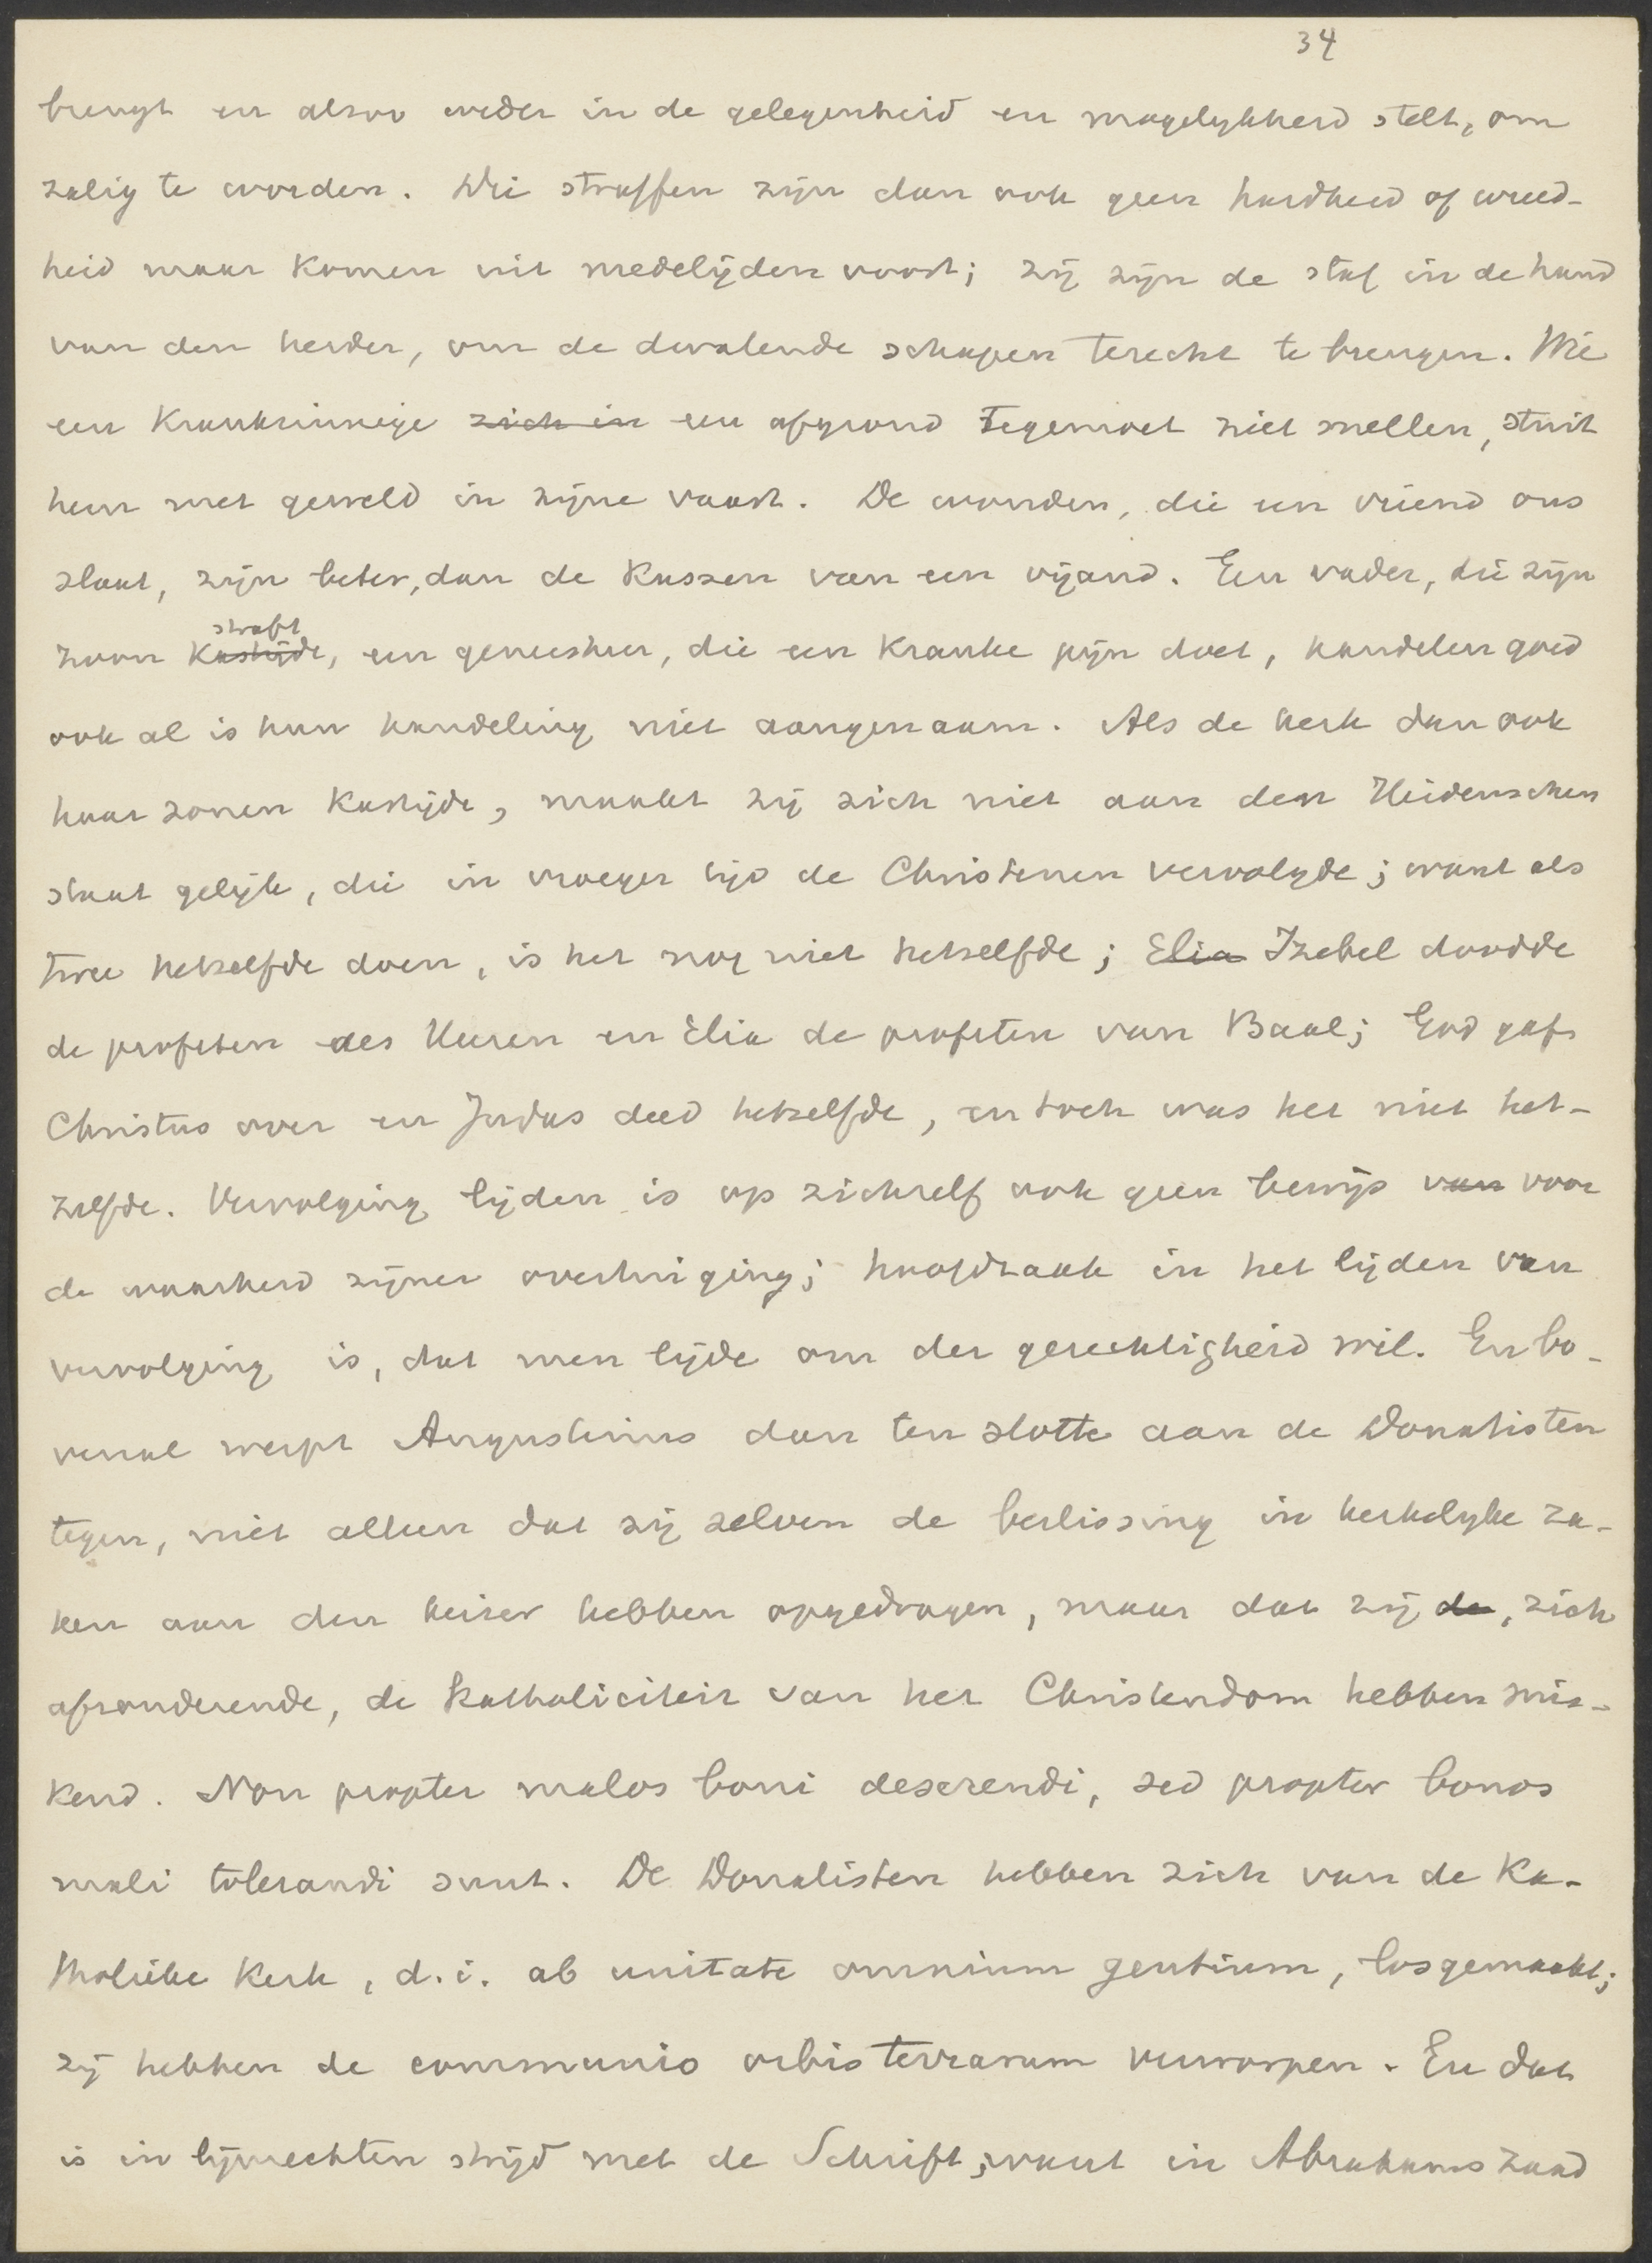 34
brengt en alzoo weder in de gelegenheid en mogelykheid stelt, om
zalig te worden. Die straffen zijn dan ook geen hardheid of wreed-
heid maar komen uit medelijden voort; zij zijn de staf in de hand
van den herder, om de dwalende schapen terecht te brengen. Wie
een krankzinnige zich in een afgrond tegemoet ziet snellen, stuit
hem met geweld in zijne vaart. De wonden, die een vriend ons
slaat, zijn beter, dan de kussen van een vijand. Een vader, die zijn
straft
zoon kastijdt, een geneesheer, die een kranke pijn doet, handelen goed
ook al is hun handeling niet aangenaam. Als de kerk dan ook
haar zonen kastijdt, maakt zij zich niet aan den Heidenschen
staat gelijk, die in vroeger tijd de Christenen vervolgde; want als
twee hetzelfde doen, is het nog niet hetzelfde; Elia Izebel doodde
de profeten des Heeren en Elia de profeten van Baal; God gaf
Christus over en Judas deed hetzelfde, en toch was het niet het-
zelfde. Vervolging lijden is op zichzelf ook geen bewijs van voor
de waarheid zijner overtuiging; hoofdzaak in het lijden van
vervolging is, dat men lijde om der gerechtigheid wil. En bo-
venal werpt Augustinus dan ten slotte aan de Donatisten
tegen, niet alleen dat zij zelven de beslissing in kerkelyke za-
ken aan den keizer hebben opgedragen, maar dat zij de, zich
afzonderende, de katholiciteit van het Christendom hebben mis-
kend. Non propter malos boni deserendi, sed propter bonos
mali tolerandi sunt. De Donatisten hebben zich van de Ka-
tholieke Kerk, d.i. ab unitate omnium gentium, losgemaakt;
zij hebben de communio orbis terrarum verworpen. En dat
is in lijnrechten strijd met de Schrift, want in Abrahams zaad